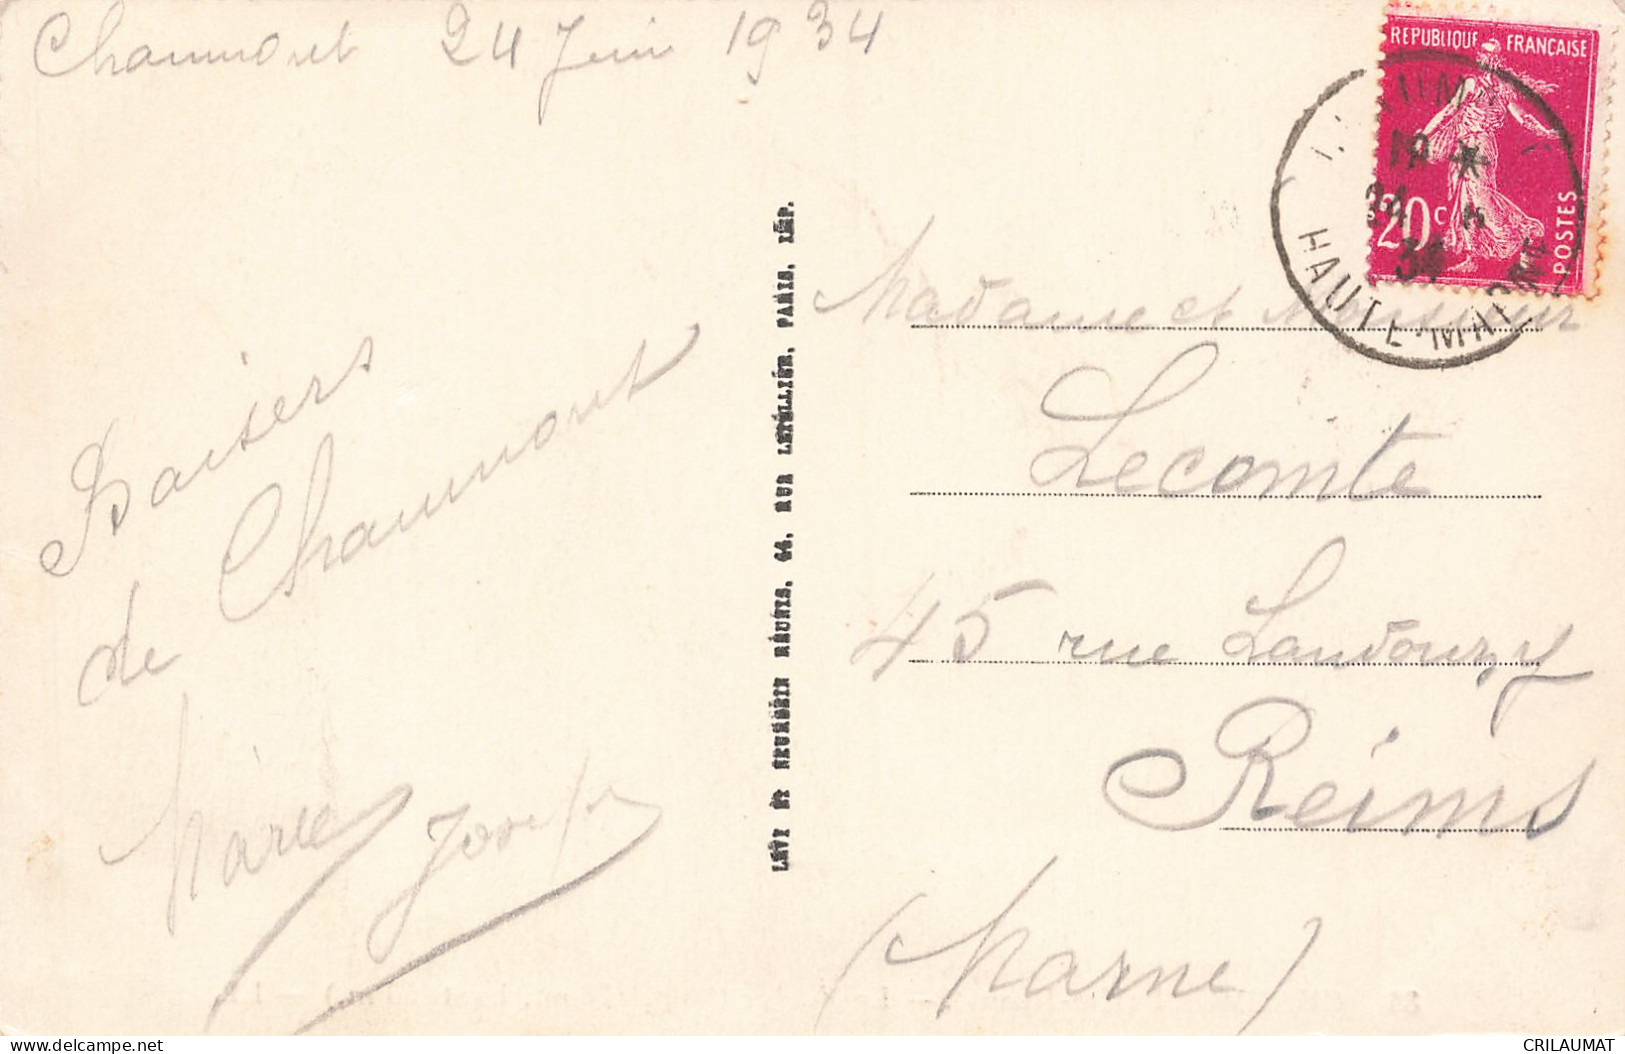 Chaumont 24 Juin 1934
Baisers
de Chaumont
Marie Joseph
LÉVY ET NEURDEIN RÉUNIS, 44, RUE LETELLIER, PARIS, IMP.
REPUBLIQUE FRANÇAISE
20c
POSTES
CHAUMONT
19 *
24 - 6
34
HAUTE-MARNE
Madame et Monsieur
Lecomte
45 rue Landouzy
Reims
(Marne)
CRILAUMAT